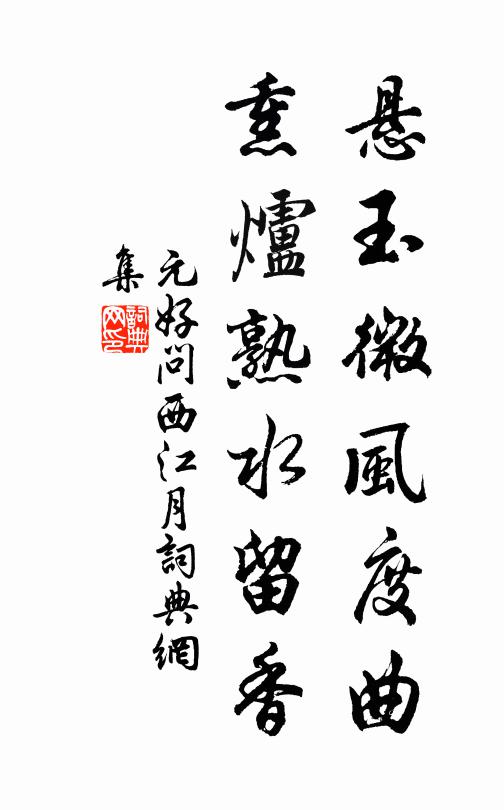 悬玉微風度曲
熏爐熟水留香
元好问西江月詞典網
集
詞典
网印